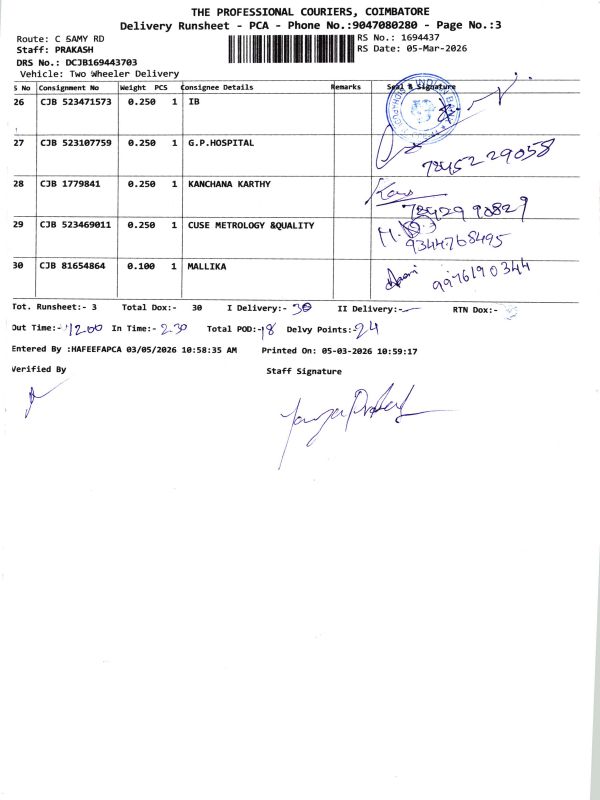 THE PROFESSIONAL COURIERS, COIMBATORE
Delivery Runsheet - PCA - Phone No.:9047080280 - Page No.:3
Route: C SAMY RD
RS No.: 1694437
Staff: PRAKASH
RS Date: 05-Mar-2026
DRS No.: DCJB169443703
Vehicle: Two Wheeler Delivery
S No Consignment No Weight PCS Consignee Details Remarks Seal & Signature
26 CJB 523471573 0.250 1 IB
27 CJB 523107759 0.250 1 G.P.HOSPITAL
7845229058
28 CJB 1779841 0.250 1 KANCHANA KARTHY
29 CJB 523469011 0.250 1 CUSE METROLOGY &QUALITY
9344768495
30 CJB 81654864 0.100 1 MALLIKA
9976190344
Tot. Runsheet:- 3 Total Dox:- 30 I Delivery:- 30 II Delivery:- RTN Dox:-
Out Time:- 12.00 In Time:- 2.30 Total POD:- 18 Delvy Points:- 24
Entered By :HAFEEFAPCA 03/05/2026 10:58:35 AM Printed On: 05-03-2026 10:59:17
Verified By Staff Signature